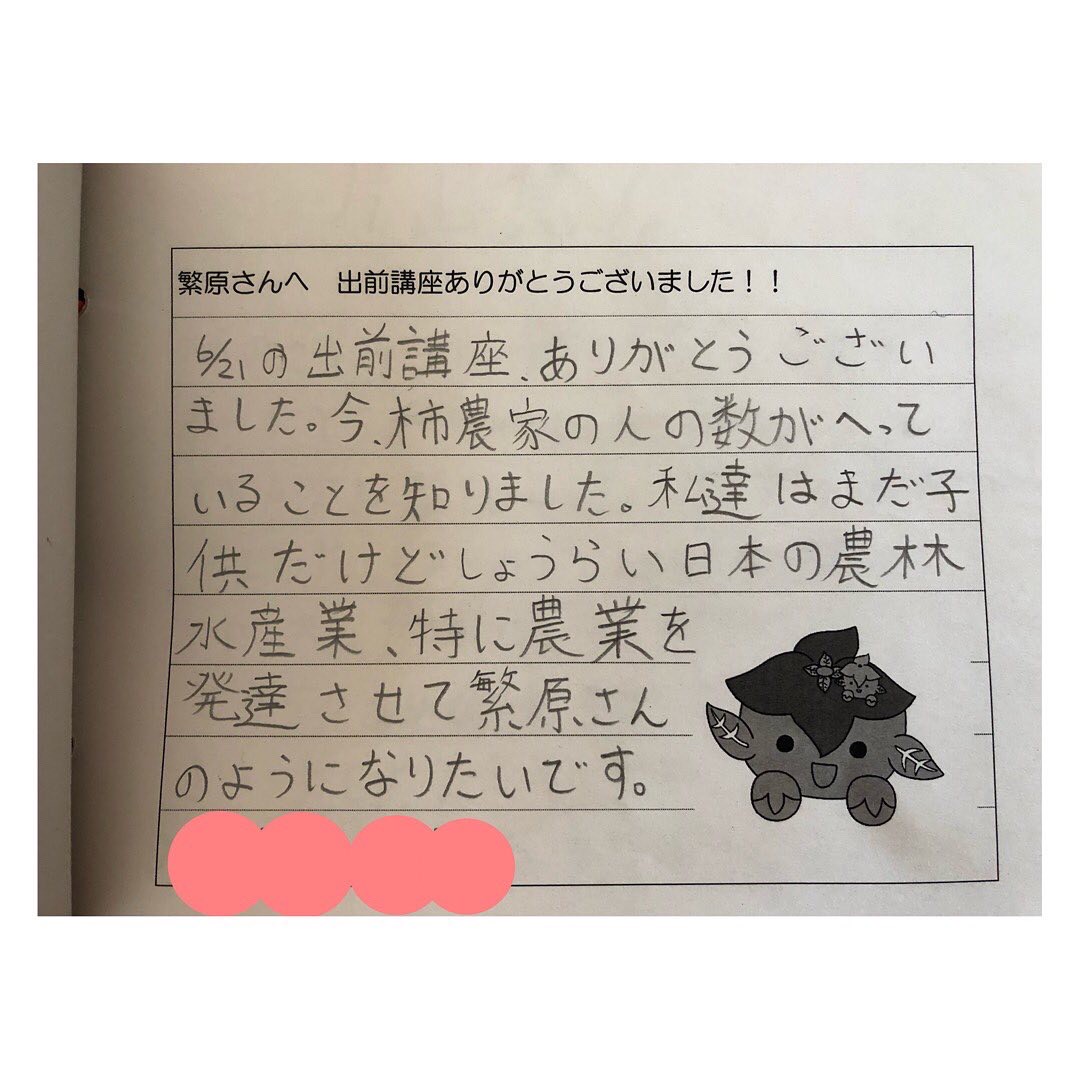 繁原さんへ　出前講座ありがとうございました！！
6/21の出前講座、ありがとうござい
ました。今、柿農家の人の数がへって
いることを知りました。私達はまだ子
供だけどしょうらい日本の農林
水産業、特に農業を
発達させて繁原さん
のようになりたいです。